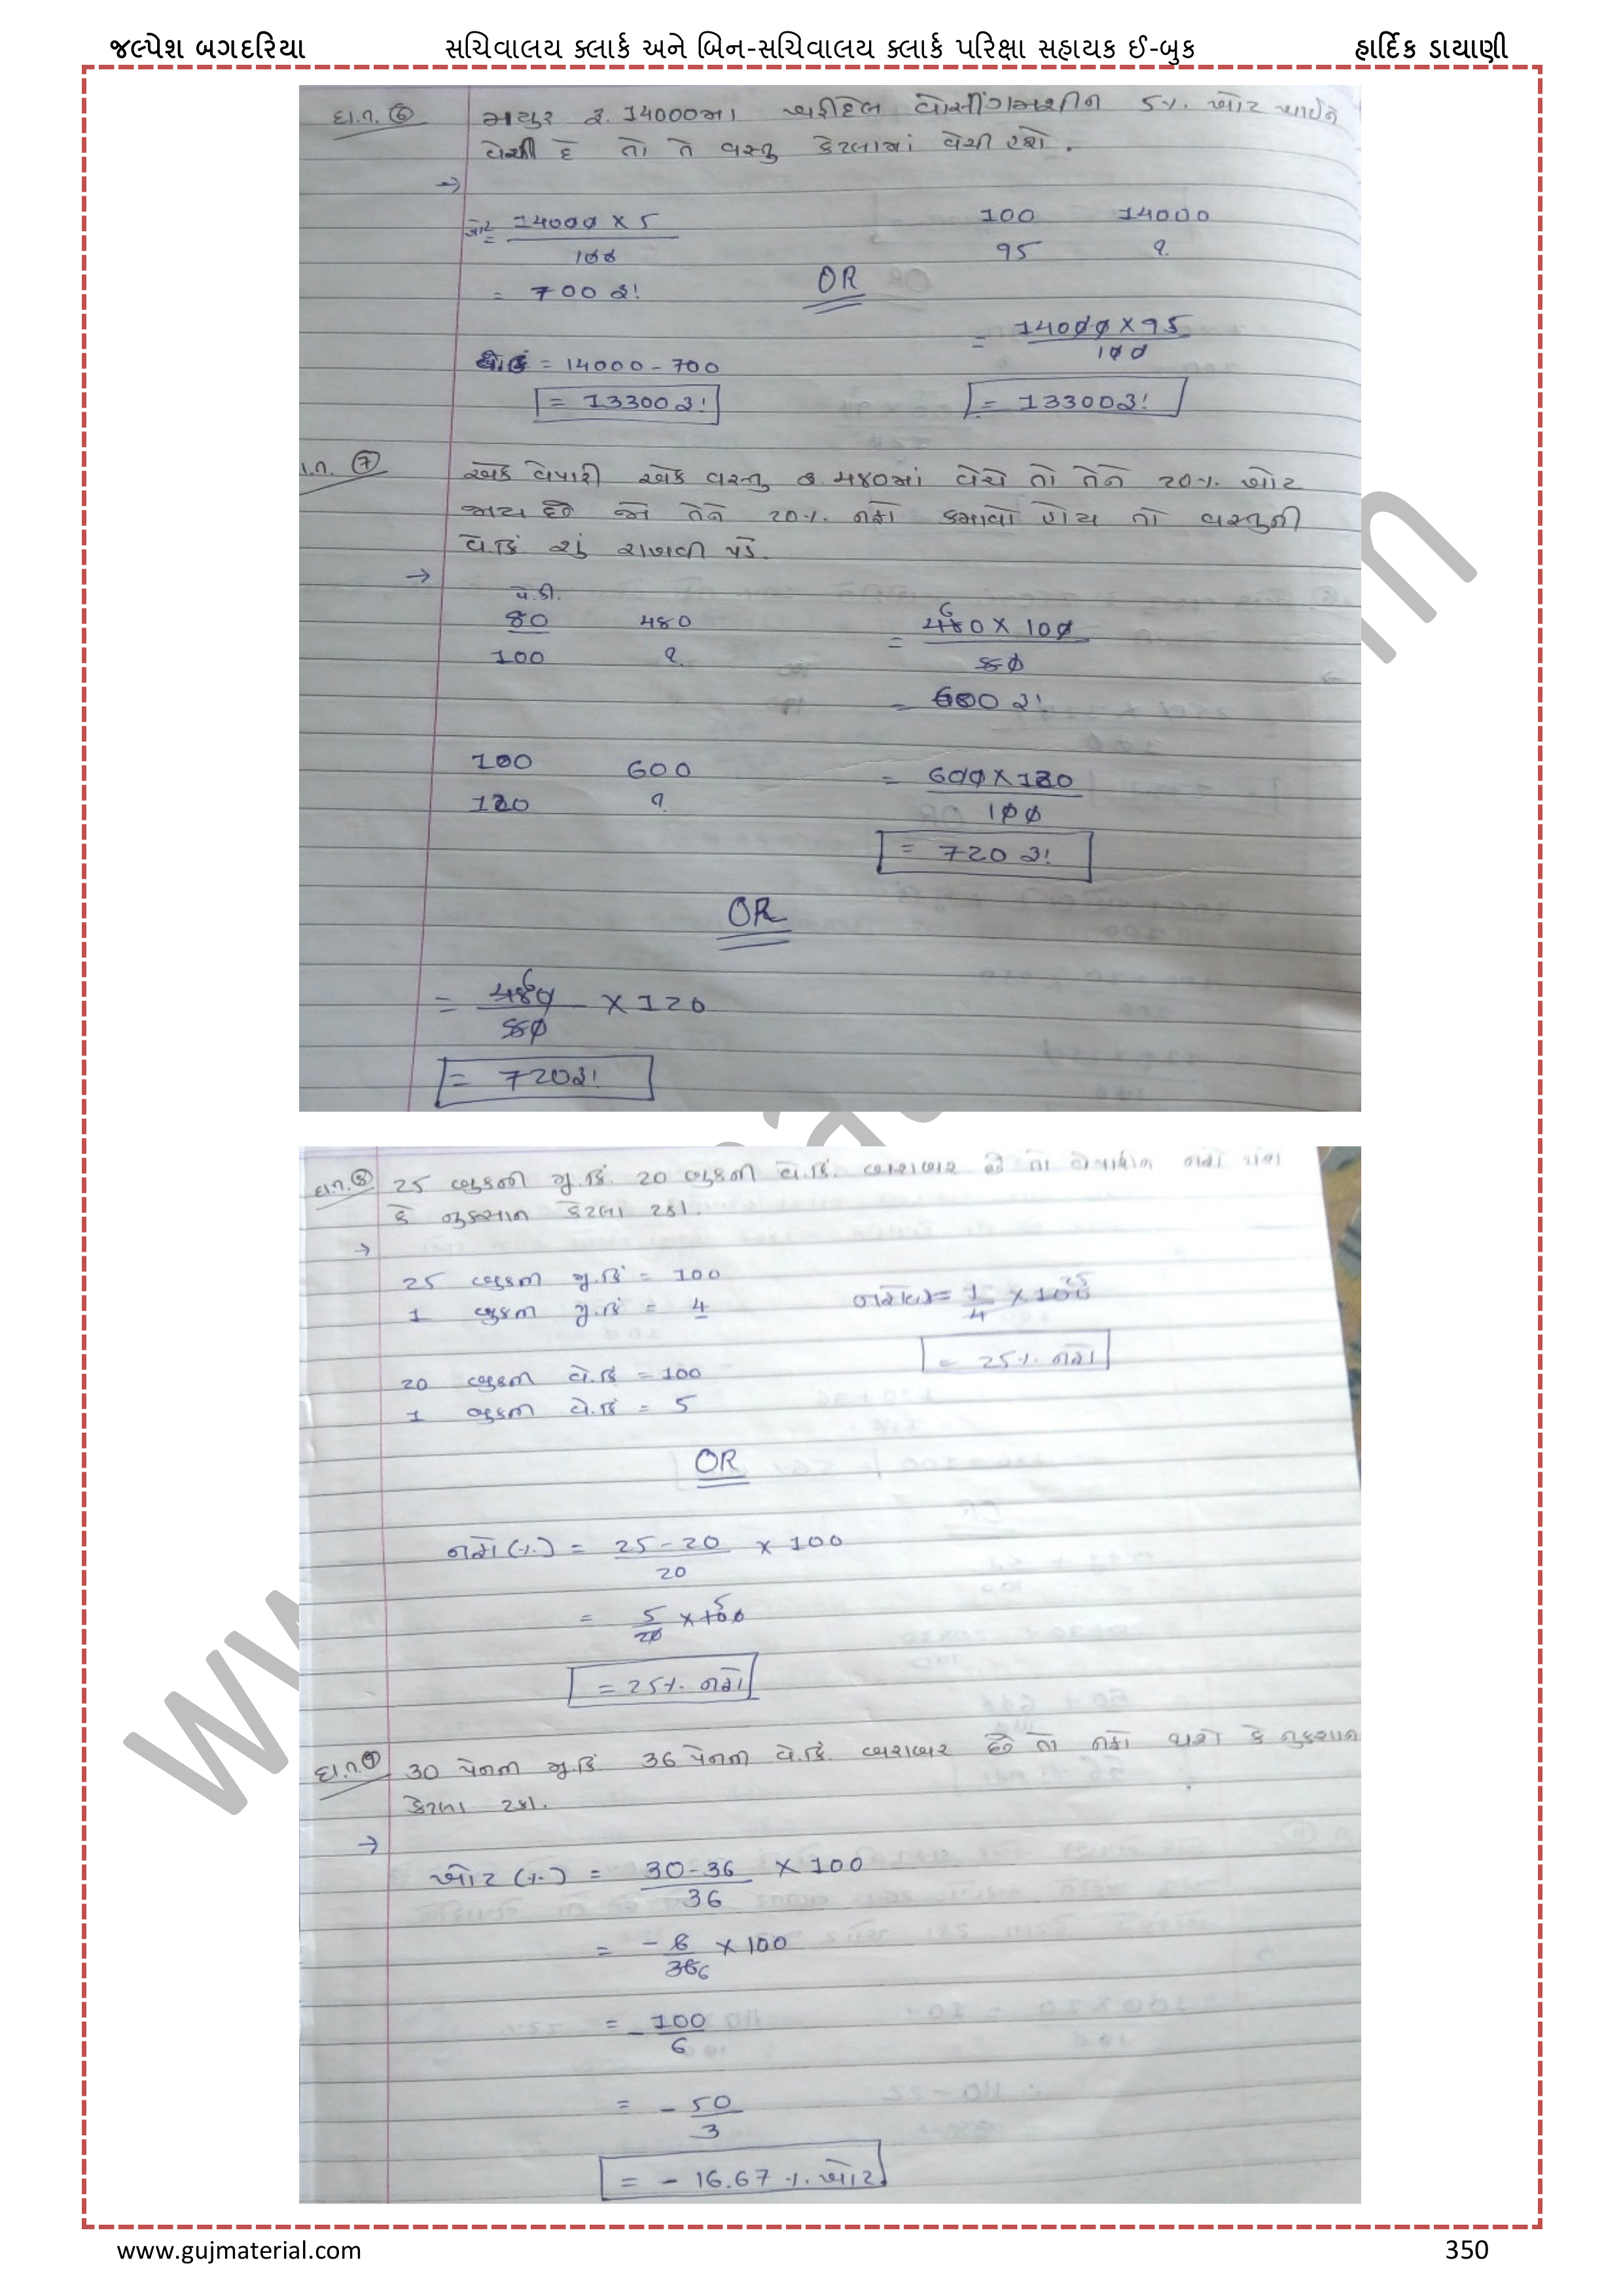 જલ્પેશ બગદરિયા સચિવાલય ક્લાર્ક અને બિન-સચિવાલય ક્લાર્ક પરિક્ષા સહાયક ઈ-બુક હાર્દિક ડાયાણી
દા.ત. ⑥ મયુર રૂ. 14000મા ખરીદેલ વોસીંગમશીન 5%. ખોટ ખાઈને
વેચી દે તો તે વસ્તુ કેટલામાં વેચી હશે.
→
ખોટ = 14000 X 5 / 100
= 700 રૂ!
વે.કિં = 14000 - 700
= 13300 રૂ!
OR
100 14000
95 ?
= 14000 X 95 / 100
= 13300 રૂ!
દા.ત. ⑦ એક વેપારી એક વસ્તુ રૂ. 480માં વેચે તો તેને 20%. ખોટ
જાય છે જો તેને 20%. નફો કમાવો હોય તો વસ્તુની
વે.કિં શું રાખવી પડે.
→
વે.કી.
80 480
100 ?
= 480 X 100 / 80
= 600 રૂ!
100 600
120 ?
= 600 X 120 / 100
= 720 રૂ!
OR
= 480 / 80 X 120
= 720 રૂ!
દા.ત. ⑧ 25 બુકની મુ.કિં. 20 બુકની વે.કિં. બરાબર છે તો વેપારીને નફો થશે
કે નુકસાન કેટલા ટકા.
→
25 બુકની મુ.કિં = 100
1 બુકની મુ.કિં = 4
20 બુકની વે.કિં = 100
1 બુકની વે.કિં = 5
નફો(%) = 1 / 4 X 100
= 25%. નફો
OR
નફો (%) = 25 - 20 / 20 X 100
= 5 / 20 X 100
= 25%. નફો
દા.ત. ⑨ 30 પેનની મુ.કિં. 36 પેનની વે.કિં. બરાબર છે તો નફો થશે કે નુકશાન
કેટલા ટકા.
→
ખોટ (%) = 30 - 36 / 36 X 100
= - 6 / 36 X 100
= - 100 / 6
= - 50 / 3
= - 16.67 %. ખોટ
www.gujmaterial.com 350